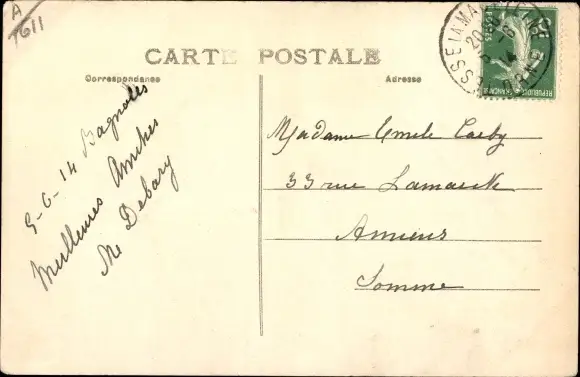 A
7611
CARTE POSTALE
Correspondance
Adresse
5-6-14 Bagnoles
Meilleures Amitiés
Me Debary
Madame Emile Carby
33 rue Lamarck
Amiens
Somme
5
POSTES
REPUBLIQUE FRANÇAISE
ORNE